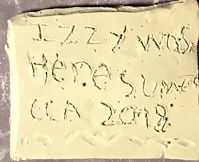 IZZY WAS
HERE SUMER
CCA 2018